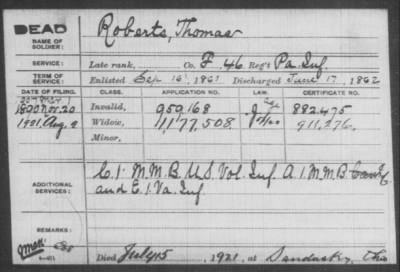 DEAD
NAME OF SOLDIER: Roberts, Thomas
SERVICE: Late rank, Co. F. 46 Reg't Pa. Inf.
TERM OF SERVICE: Enlisted Sep 16, 1861 Discharged June 17, 1862
DATE OF FILING. CLASS. APPLICATION NO. LAW. CERTIFICATE NO.
1890 Nov. 20 Invalid, 959,168 882475
1921. Aug. 9 Widow, 1177.508. 911,276.
Minor,
ADDITIONAL SERVICES: C. 1. M.M.B. U.S. Vol. Inf. A 1. M.M.B.
and E. 1. Va. Inf
REMARKS:
Died July 15, 1921, at Sandusky, Ohio